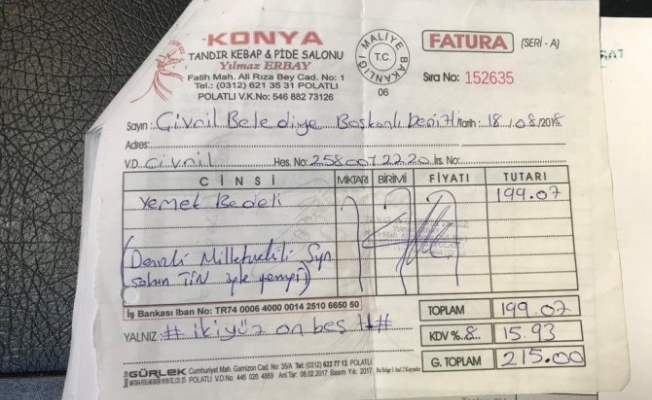 KONYA
TANDIR KEBAP & PİDE SALONU
Yılmaz ERBAY
Fatih Mah. Ali Rıza Bey Cad. No: 1
Tel.: (0312) 621 35 31 POLATLI
POLATLI V.K.No: 546 882 73126
MALİYE BAKANLIĞI
T.C.
06
FATURA (SERİ - A)
Sıra No: 152635
Sayın: Çivril Belediye Başkanlı Denizli Tarih: 18/08/2018
Adres:
V.D. Civril Hes. No: 2580072220 İrs. No:
CİNSİ MİKTARI BİRİMİ FİYATI TUTARI
Yemek Bedeli 199.07
(Denizli Milletvekili Syn
Şahin TİN yemeği)
İş Bankası Iban No: TR74 0006 4000 0014 2510 6650 50
TOPLAM 199.07
YALNIZ: # ikiyüz on beş #
KDV % 8 15.93
G. TOPLAM 215.00
GÜRLEK Cumhuriyet Mah. Garnizon Cad. No: 35/A Tel: (0312) 622 77 13 POLATLI
POLATLI V.D.No: 446 026 4869 Anl.Tar: 08.02.2017 Basım Yılı: 2017